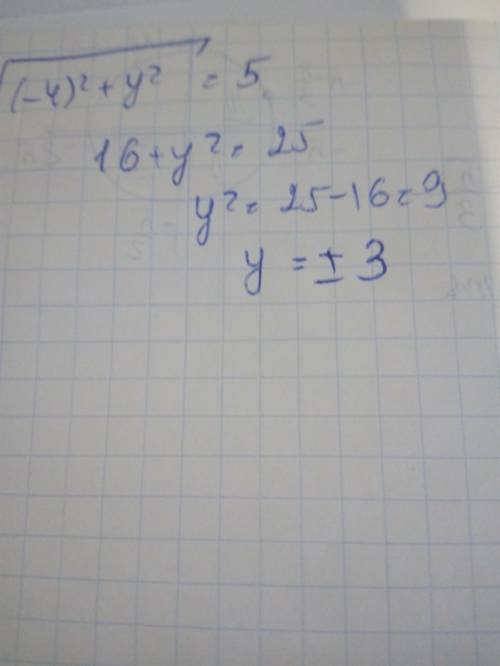 √(-4)² + y² = 5
16 + y² = 25
y² = 25 - 16 = 9
y = ± 3